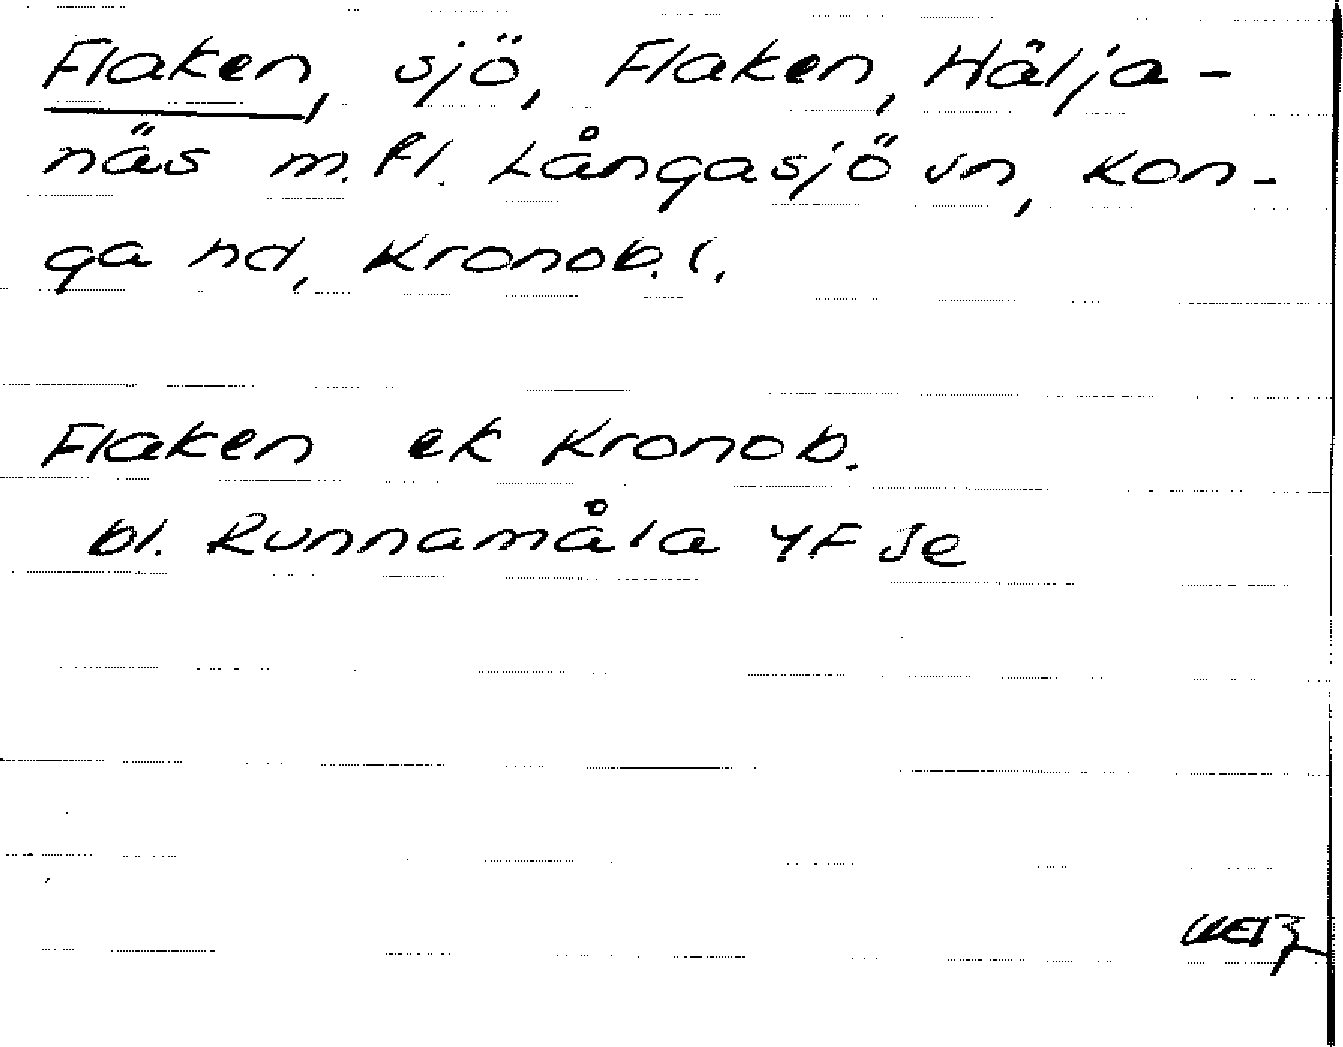 Flaken, sjö, Flaken, Hälja-
näs m.fl. Långasjö sn, Kon-
ga hd, Kronob. l.
Flaken ek Kronob.
bl. Runnamåla 4F Se